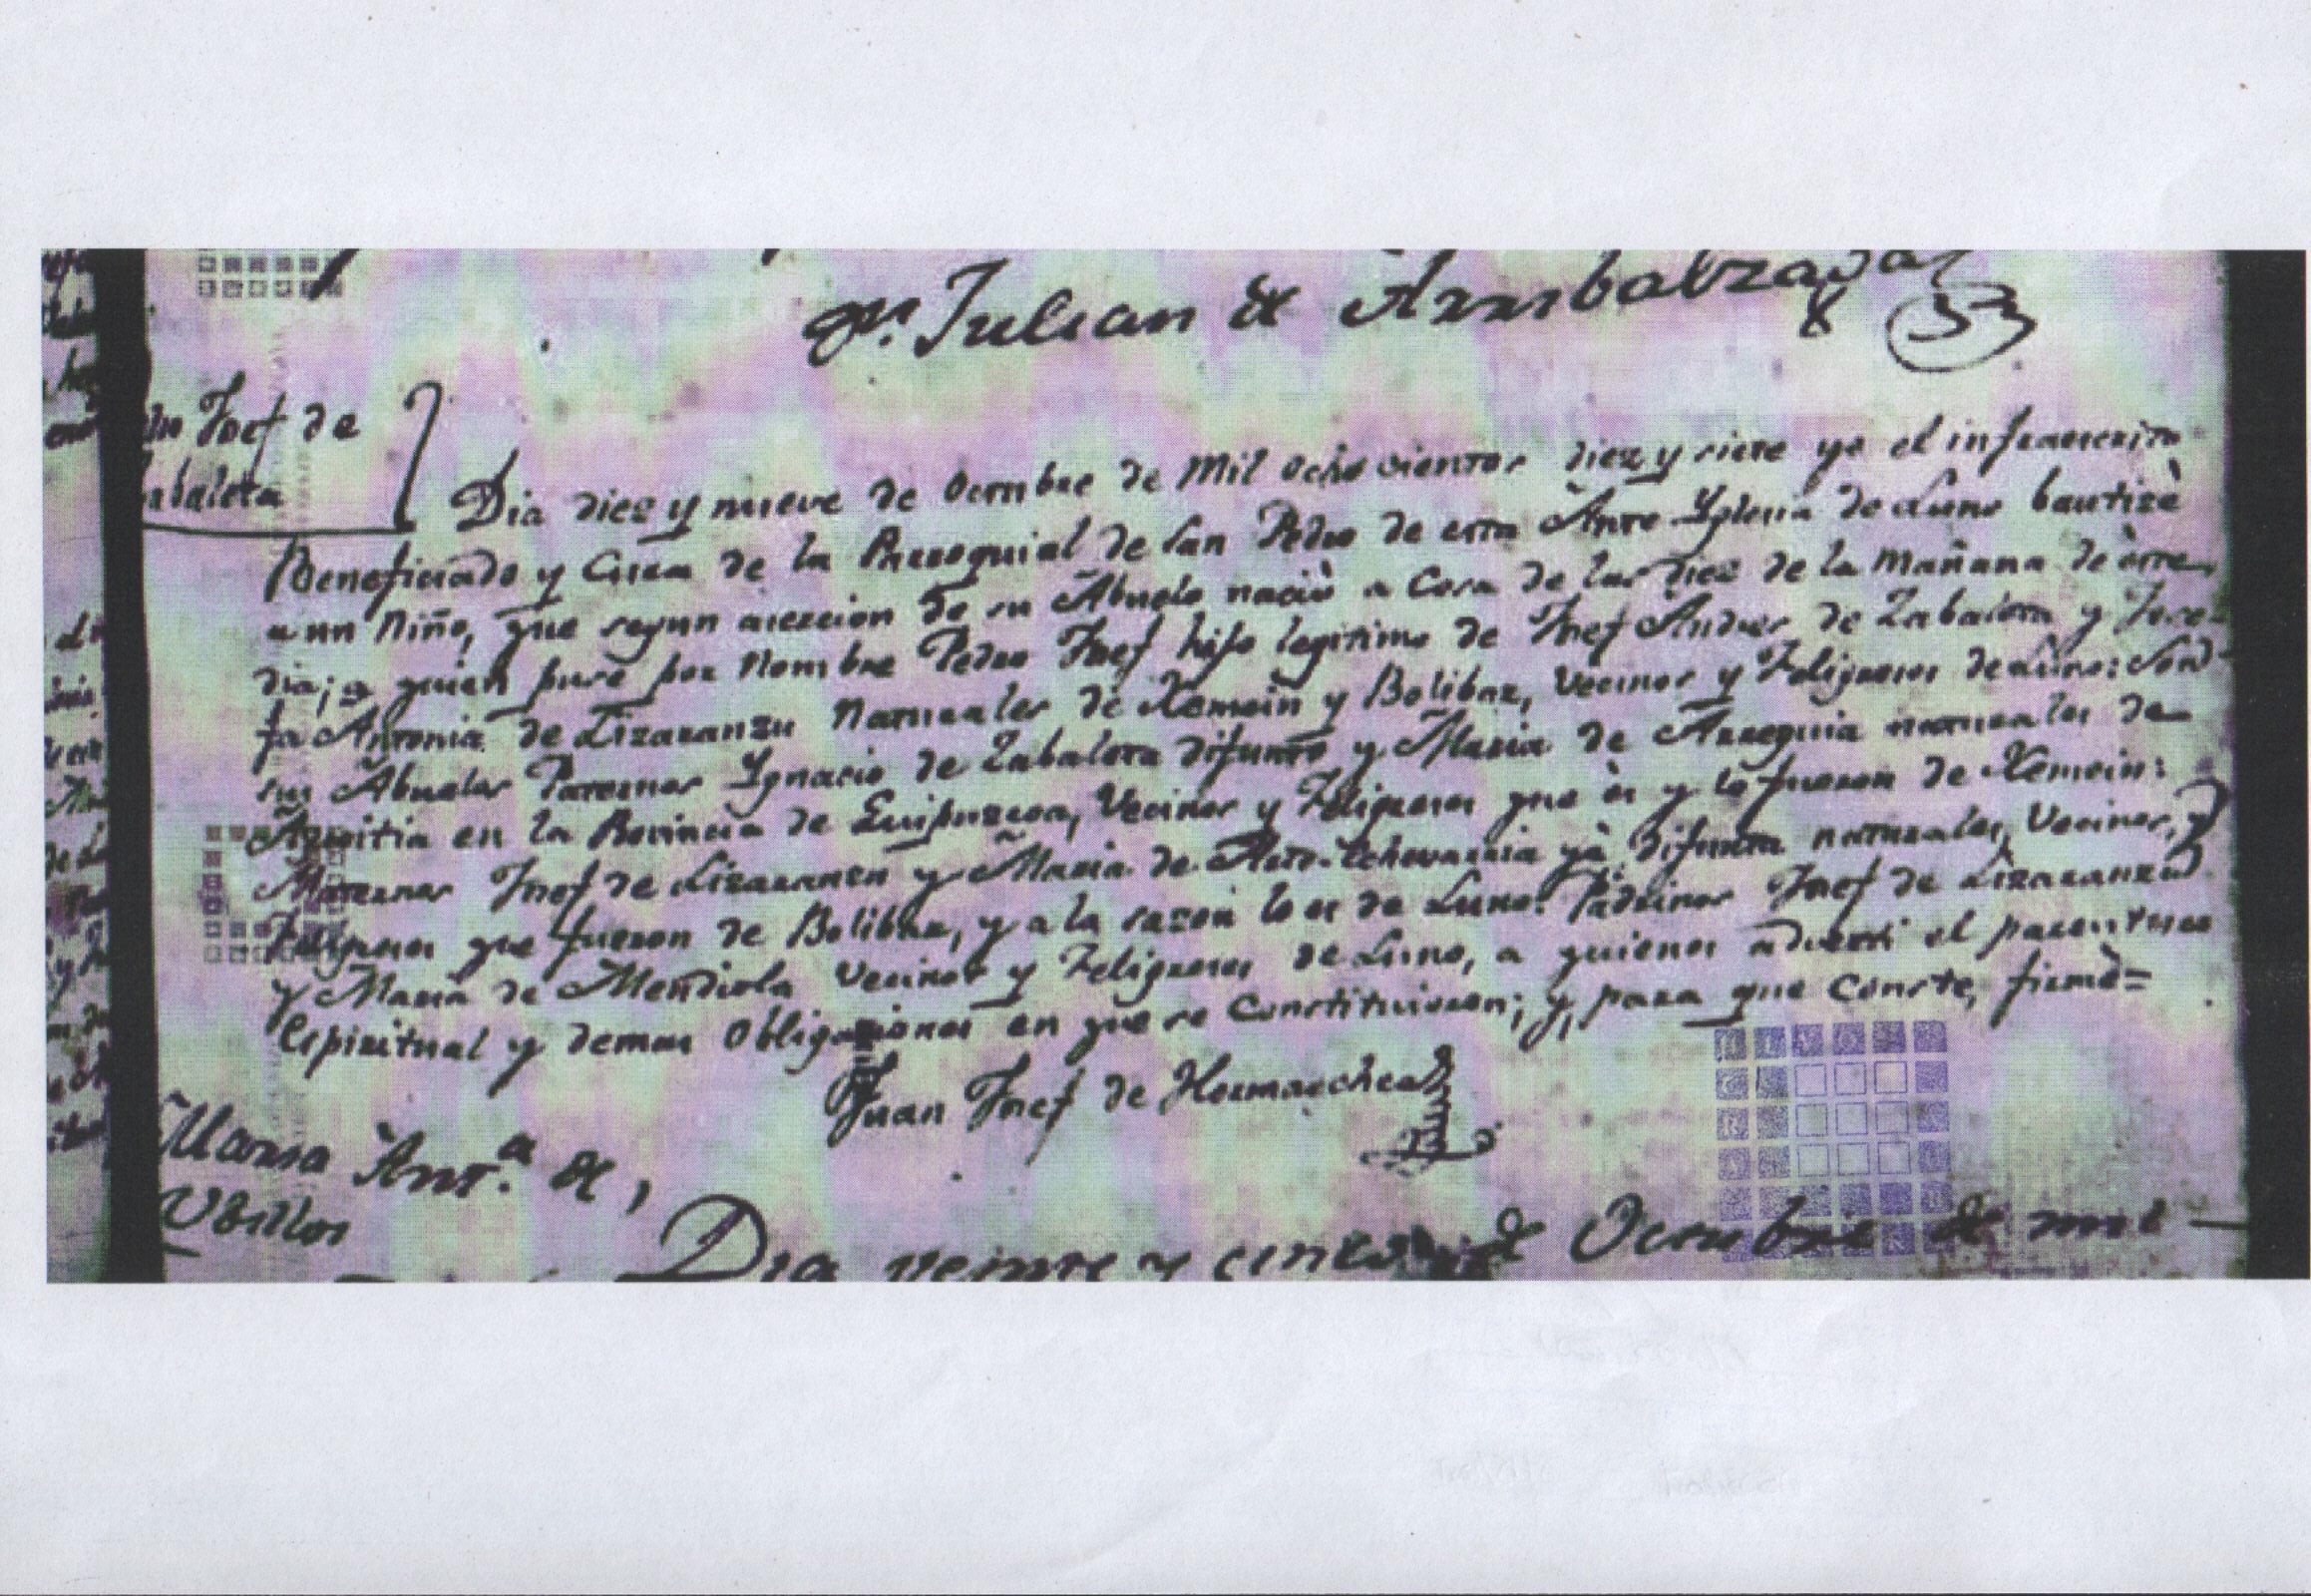 Julian de Arribalzaga
Josef de
Dia diez y nueve de Octubre de Mil ochocientos diez y siete yo el infraescrito
Beneficiado y Cura de la Parroquial de San Pedro de esta Ante-Yglesia de Luno bautizè
a un Niño, que segun asercion de su Abuelo naciò a Cosa de las diez de la Mañana de èste
dia; a quien puse por Nombre Pedro Josef hijo legitimo de Josef Andres de Zabaleta y Jose-
fa Antonia de Lizaranzu Naturales de Xemein y Bolibar, Vecinos y Feligreses de Luno: Son
sus Abuelos Paternos Ygnacio de Zabaleta difunto y Maria de Arreguia naturales de
Azcoitia en la Provincia de Guipuzcoa, Vecinos y Feligreses que ès y lo fueron de Xemein:
Maternos Josef de Lizaranzu y Maria de Echevarria yà difunta naturales, Vecinos, y
Feligreses que fueron de Bolibar, y a la sazon lo es de Luno: Padrinos Josef de Lizaranzu
y Maria de Mendiola Vecinos y Feligreses de Luno, a quienes adverti el parentesco
Espiritual y demas Obligaciones en que se Constituieron; y, para que Conste, firmè=
Juan Josef de Hormaechea
Maria Ant.ª de
Ubillos
Dia veinte y cinco de Octubre de mil